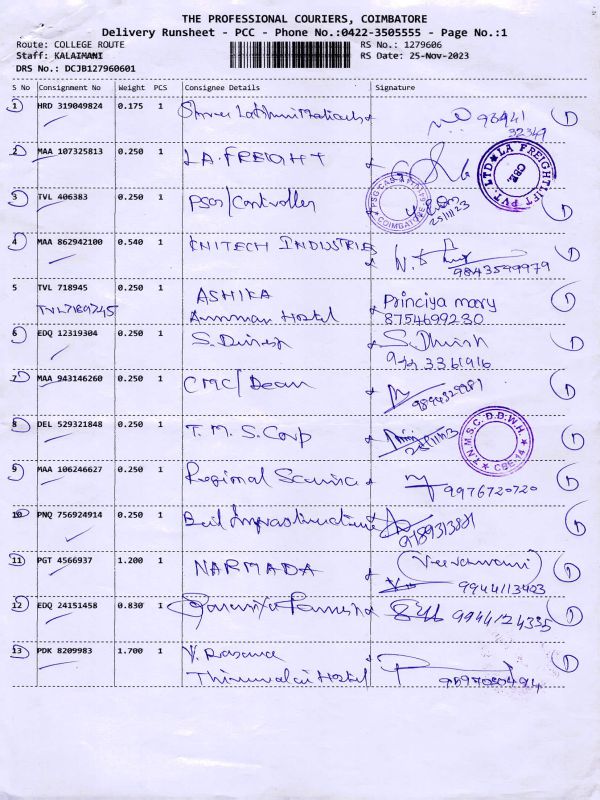 THE PROFESSIONAL COURIERS, COIMBATORE
Delivery Runsheet - PCC - Phone No.:0422-3505555 - Page No.:1
Route: COLLEGE ROUTE RS No.: 1279606
Staff: KALAIMANI RS Date: 25-Nov-2023
DRS No.: DCJB127960601
S No Consignment No Weight PCS Consignee Details Signature
1 HRD 319049824 0.175 1 93941
32347
2 MAA 107325813 0.250 1 LA.FREIGHT
LA FREIGHTLIFT PVT. LTD CBE.
3 TVL 406383 0.250 1 PSG/Controller
COIMBATORE 25/11/23
4 MAA 862942100 0.540 1 KNITECH INDUSTRIES
9843599979
5 TVL 718945 0.250 1 ASHIKA Princiya mary
TVL7189245 Amman Hostel 8754699230
6 EDQ 12319304 0.250 1 S.Dinesh S.Dhinsh
3361916
7 MAA 943146260 0.250 1 CMC/Dean
8 DEL 529321848 0.250 1 T.M.S.Corp
N.M.S.C. D.D.W.H. CBE-14
9 MAA 106246627 0.250 1 Regional Science
9976720720
10 PNQ 756924914 0.250 1 Infrastructure
9189313881
11 PGT 4566937 1.200 1 NARMADA
9944113423
12 EDQ 24151458 0.830 1 9944124335
13 PDK 8209983 1.700 1 V.
Hostel